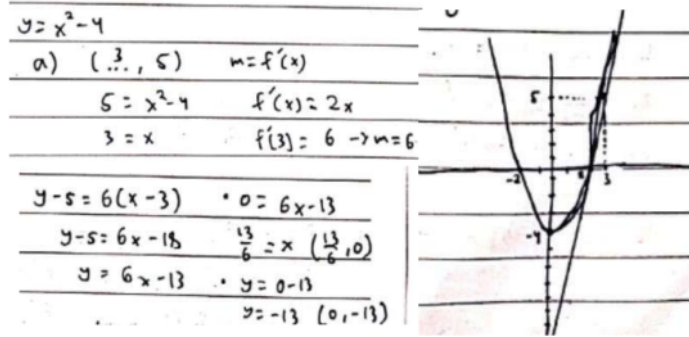 y = x² - 4
a) (3, 5) m = f'(x)
5 = x² - 4 f'(x) = 2x
3 = x f'(3) = 6 -> m = 6
y - 5 = 6(x - 3) • 0 = 6x - 13
y - 5 = 6x - 18 13/6 = x (13/6, 0)
y = 6x - 13 • y = 0 - 13
y = -13 (0, -13)
5
-2 3
-4